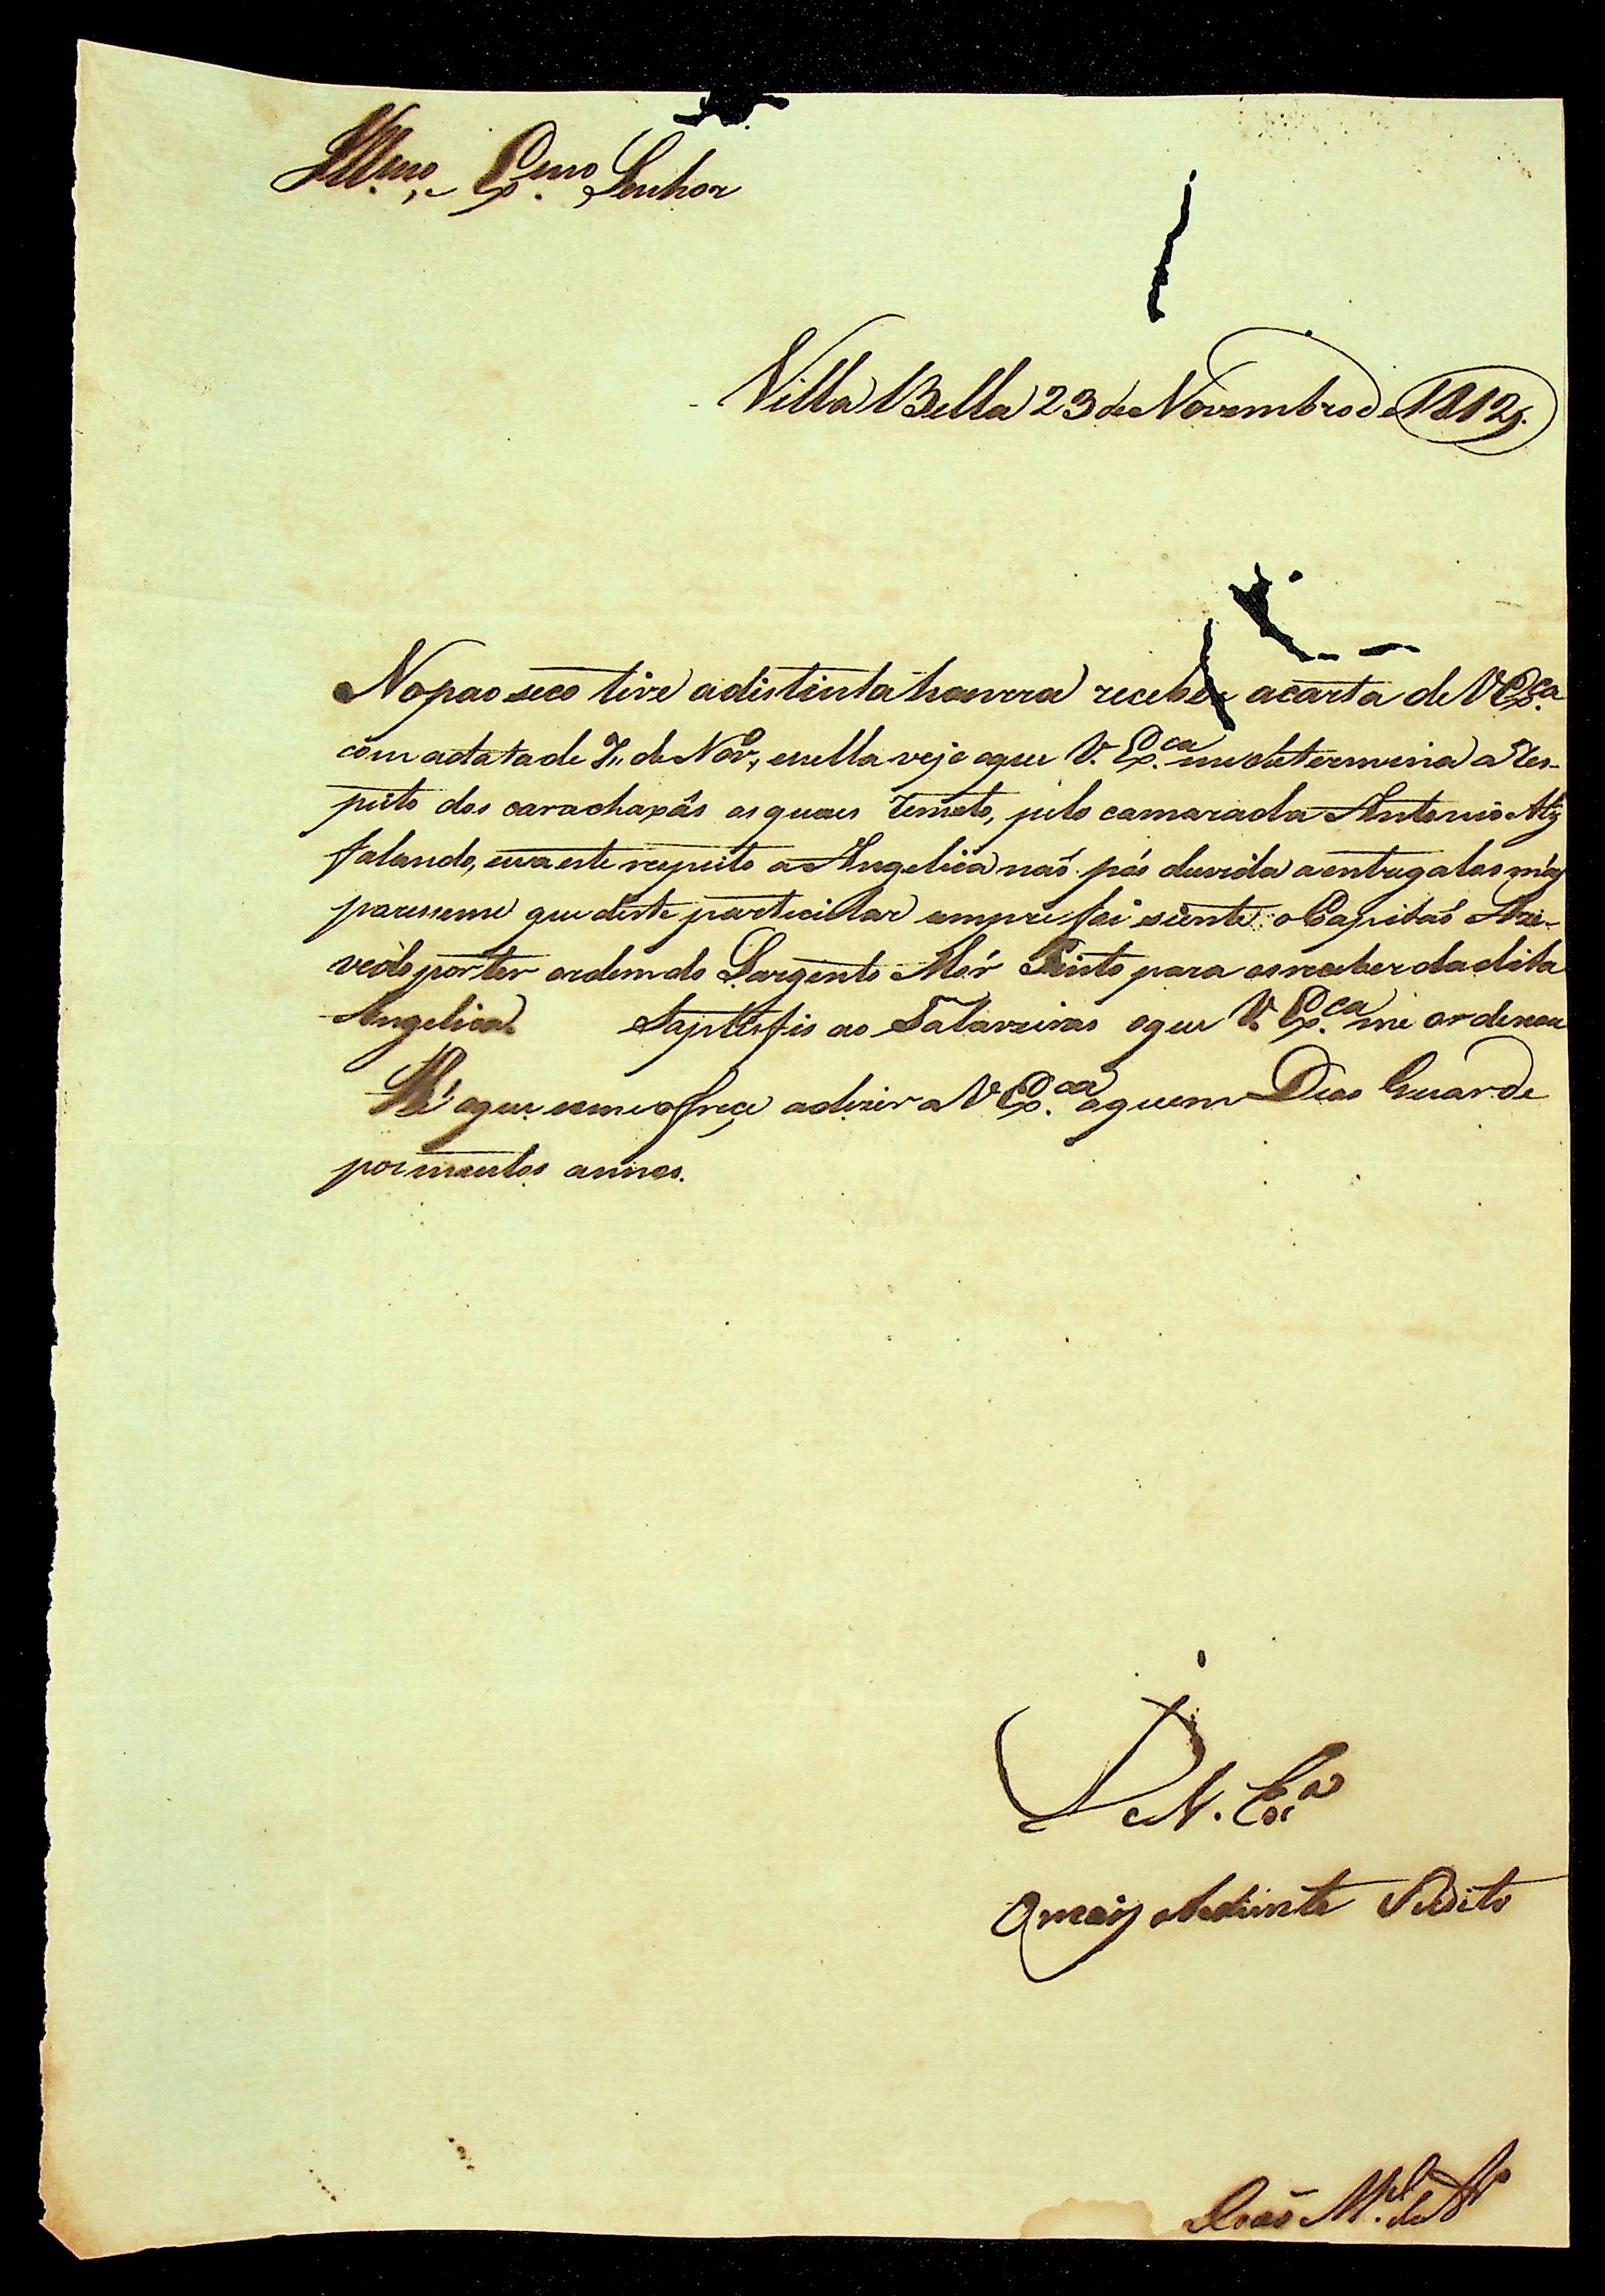 Illmo. e Exmo. Senhor
Villa Bella 23 de Novembro de 1812
No pao seco tive adistinta honrra receber acarta de V Exca.
com adata de 7 de Novo, enella vejo oque V. Exca. medetermina a Res-
peito dos carachapás os quaes Remeto, pelo camarada Antonio Alz
falando, eu a este respeito a Angelica naõ pós duvida a entregalos máz
paresseme que deste particular sempre foi siente o Capitaõ Aze-
vedo por ter ordem do Sargento Mór Pinto para os receber da dita
Angelica. Saptisfis ao Talaveiras oque V. Exca. me ordenou
Hé oque seme offrece adizer a V Exca. aquem Deos Guarde
por muitos annos.
De V. Exca
O maiz obediente Subdito
Joaõ Mel. de